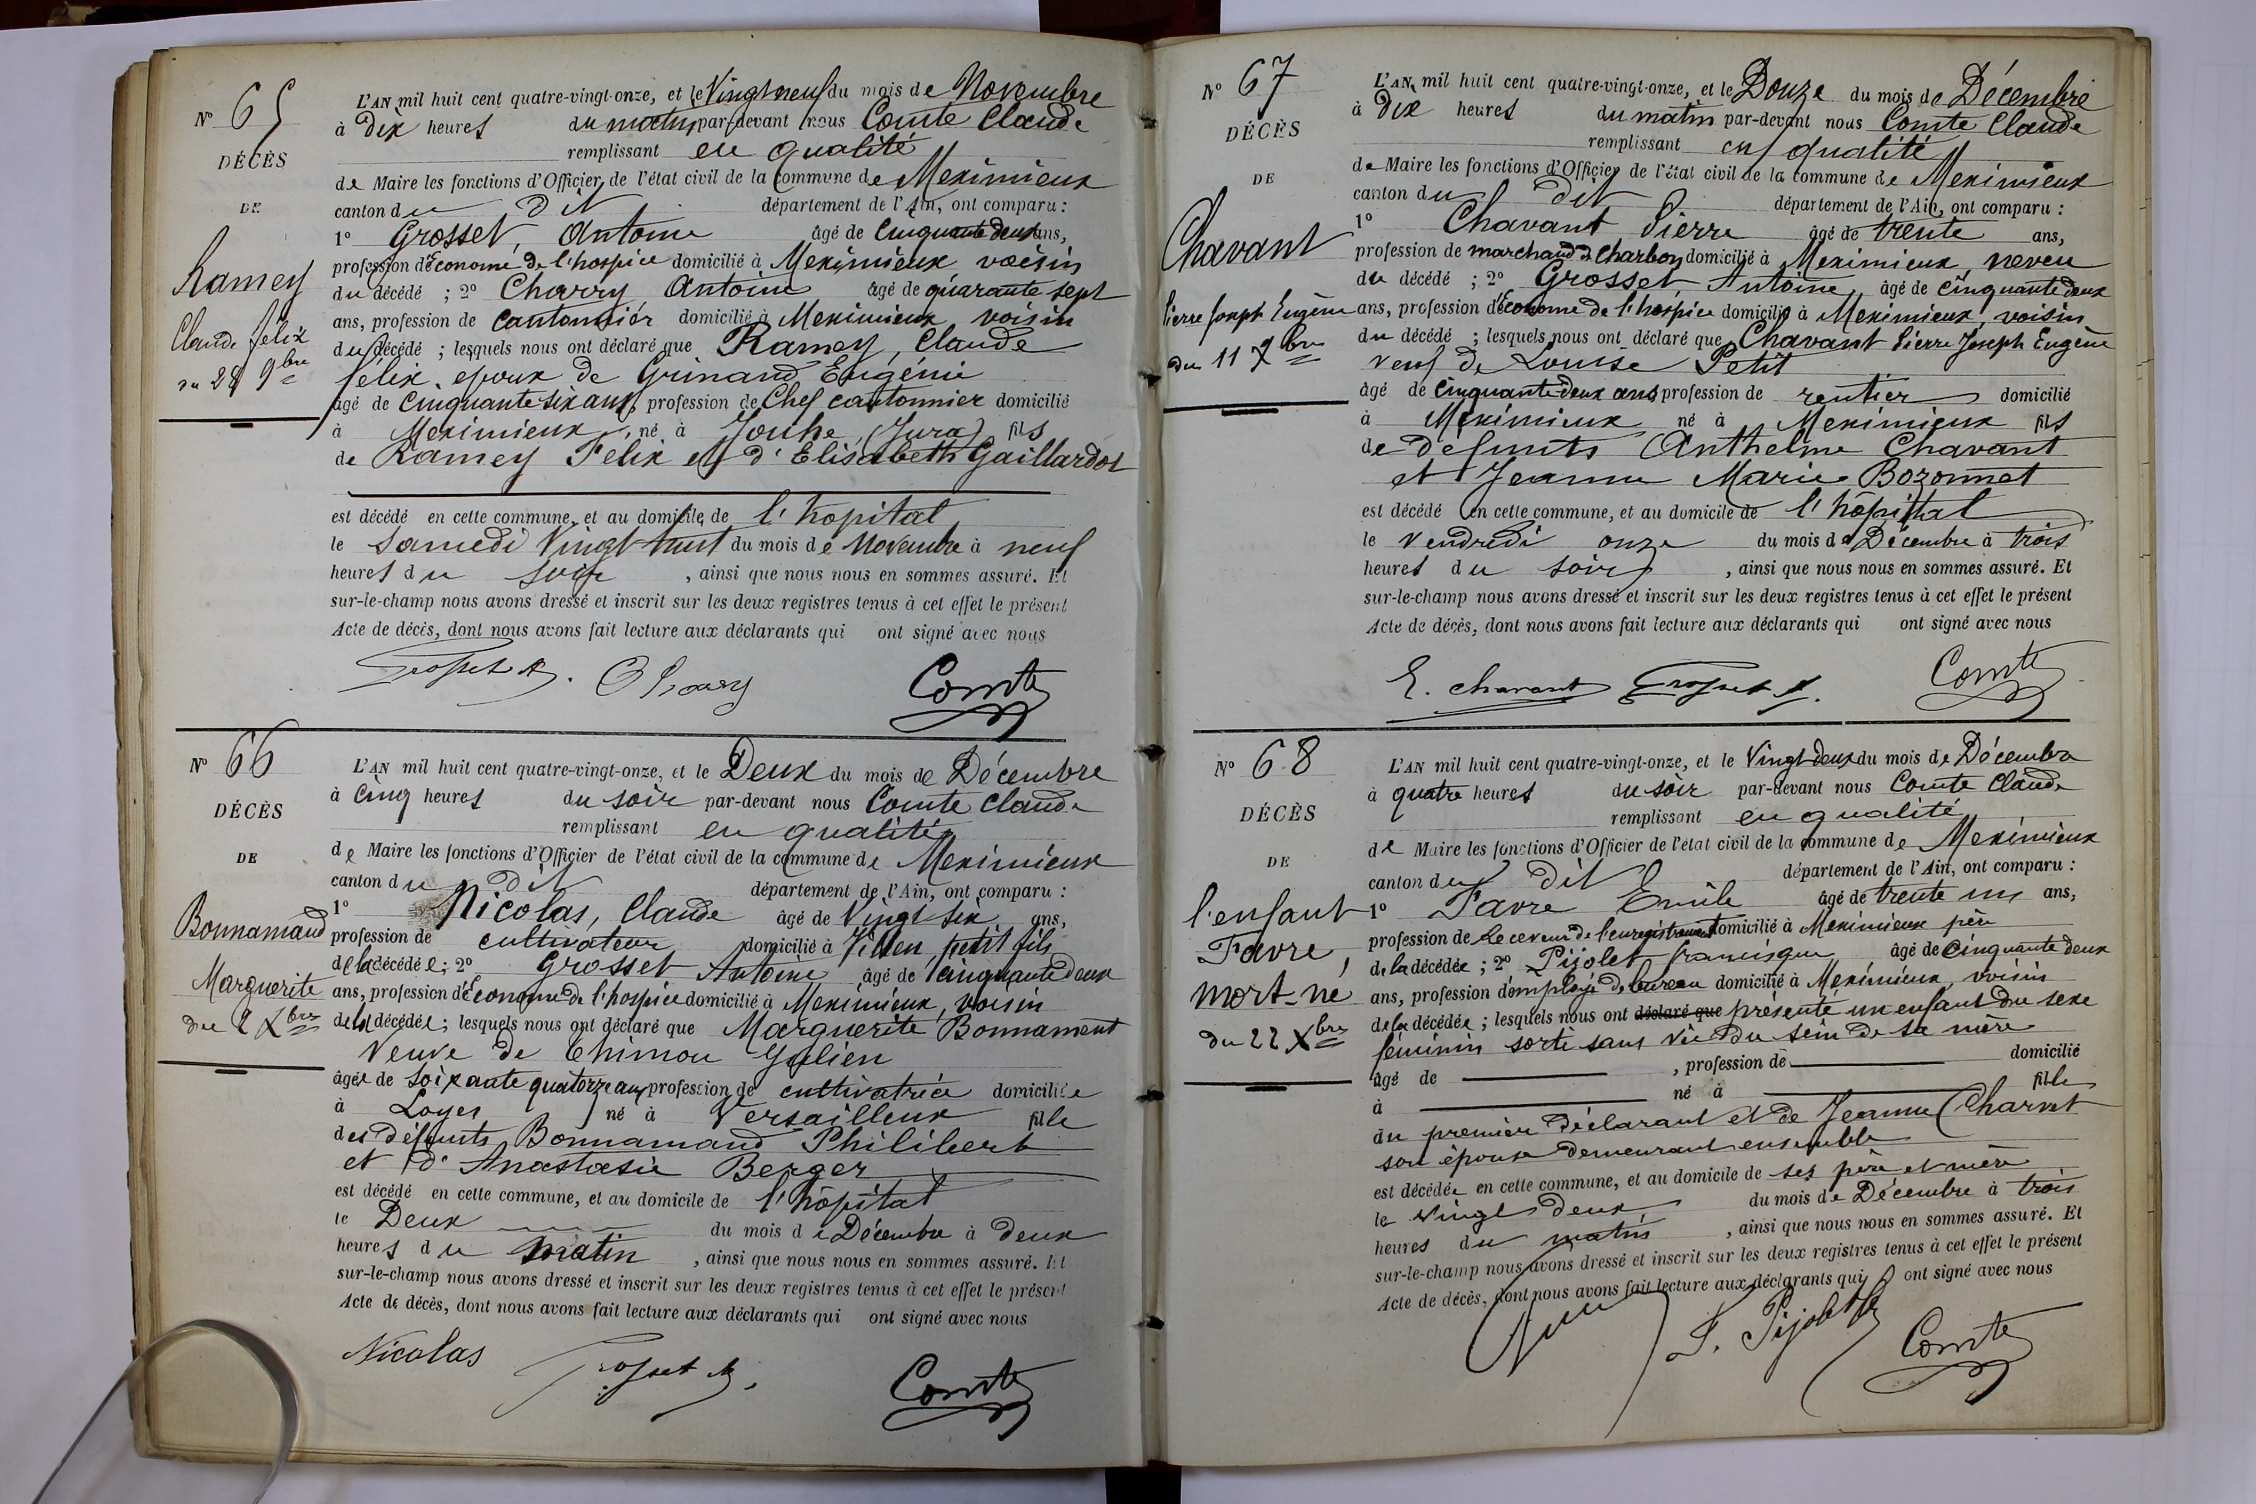 N° 65
DÉCÈS
DE
Ramey
Claude félix
du 28 9bre
L'AN mil huit cent quatre-vingt-onze, et le Vingt neuf du mois de Novembre
à Dix heures du matin par-devant nous Comte Claude
remplissant en qualité
de Maire les fonctions d'Officier de l'état civil de la commune de Meximieux
canton du dit département de l'Ain, ont comparu :
1° Grosset, Antoine âgé de Cinquante deux ans,
profession d'économe de l'hospice domicilié à Meximieux voisin
du décédé ; 2° Charry Antoine âgé de quarante sept
ans, profession de cantonnier domicilié à Meximieux voisin
du décédé ; lesquels nous ont déclaré que Ramey, Claude
félix, époux de Grinand Eugénie
âgé de Cinquante six ans, profession de Chef cantonnier domicilié
à Meximieux, né à Jouhe (Jura) fils
de Ramey Félix et d'Elisabeth Gaillardot
est décédé en cette commune, et au domicile de l'hopital
le Samedi Vingt huit du mois de Novembre à neuf
heures du soir, ainsi que nous nous en sommes assuré. Et
sur-le-champ nous avons dressé et inscrit sur les deux registres tenus à cet effet le présent
Acte de décès, dont nous avons fait lecture aux déclarants qui ont signé avec nous
Grosset A. Charry Comte
N° 66
DÉCÈS
DE
Bonnamand
Marguerite
du 2 Xbre
L'AN mil huit cent quatre-vingt-onze, et le Deux du mois de Décembre
à Cinq heures du soir par-devant nous Comte Claude
remplissant en qualité
de Maire les fonctions d'Officier de l'état civil de la commune de Meximieux
canton du dit département de l'Ain, ont comparu :
1° Nicolas, Claude âgé de Vingt six ans,
profession de cultivateur domicilié à Villen, petit fils
de la décédée ; 2° Grosset Antoine âgé de Cinquante deux
ans, profession d'Econome de l'hospice domicilié à Meximieux, voisin
de la décédée ; lesquels nous ont déclaré que Marguerite Bonnament
Veuve de Thimon Julien
âgée de soixante quatorze ans, profession de cultivatrice domiciliée
à Loyes né à Versailleux fille
des défunts Bonnamand Philibert
et d'Anastasie Berger
est décédé en cette commune, et au domicile de l'hôpital
le Deux du mois de Décembre à deux
heures du matin, ainsi que nous nous en sommes assuré. Et
sur-le-champ nous avons dressé et inscrit sur les deux registres tenus à cet effet le présent
Acte de décès, dont nous avons fait lecture aux déclarants qui ont signé avec nous
Nicolas Grosset A. Comte
N° 67
DÉCÈS
DE
Chavant
Pierre Joseph Eugène
du 11 Xbre
L'AN mil huit cent quatre-vingt-onze, et le Douze du mois de Décembre
à Dix heures du matin par-devant nous Comte Claude
remplissant en qualité
de Maire les fonctions d'Officier de l'état civil de la commune de Meximieux
canton du dit département de l'Ain, ont comparu :
1° Chavant Pierre âgé de trente ans,
profession de marchand de Charbon domicilié à Meximieux neveu
du décédé ; 2° Grosset, Antoine, âgé de Cinquante deux
ans, profession d'Econome de l'hospice domicilié à Meximieux, voisin
du décédé ; lesquels nous ont déclaré que Chavant Pierre Joseph Eugène
veuf de Louise Petit
âgé de cinquante deux ans profession de rentier domicilié
à Meximieux né à Meximieux fils
de défunts Anthelme Chavant
et Jeanne Marie Bozonnet
est décédé en cette commune, et au domicile de l'hôpital
le Vendredi onze du mois de Décembre à trois
heures du soir, ainsi que nous nous en sommes assuré. Et
sur-le-champ nous avons dressé et inscrit sur les deux registres tenus à cet effet le présent
Acte de décès, dont nous avons fait lecture aux déclarants qui ont signé avec nous
E. Chavant Grosset A. Comte
N° 68
DÉCÈS
DE
l'enfant
Favre,
mort-né
du 22 Xbre
L'AN mil huit cent quatre-vingt-onze, et le Vingt deux du mois de Décembre
à quatre heures du soir par-devant nous Comte Claude
remplissant en qualité
de Maire les fonctions d'Officier de l'état civil de la commune de Meximieux
canton du dit département de l'Ain, ont comparu :
1° Favre Emile âgé de trente un ans,
profession de Receveur de l'enregistrement domicilié à Meximieux père
de la décédée ; 2° Pijolet françisque âgé de Cinquante deux
ans, profession d'employé de bureau domicilié à Meximieux voisin
de la décédée ; lesquels nous ont déclaré que présenté un enfant du sexe
féminin sorti sans vie du sein de sa mère
âgé de , profession de domicilié
à né à fille
du premier déclarant et de Jeanne Charvet
son épouse demeurant ensemble
est décédée en cette commune, et au domicile de ses père et mère
le Vingt deux du mois de Décembre à trois
heures du matin, ainsi que nous nous en sommes assuré. Et
sur-le-champ nous avons dressé et inscrit sur les deux registres tenus à cet effet le présent
Acte de décès, dont nous avons fait lecture aux déclarants qui ont signé avec nous
F. Pijolet Comte